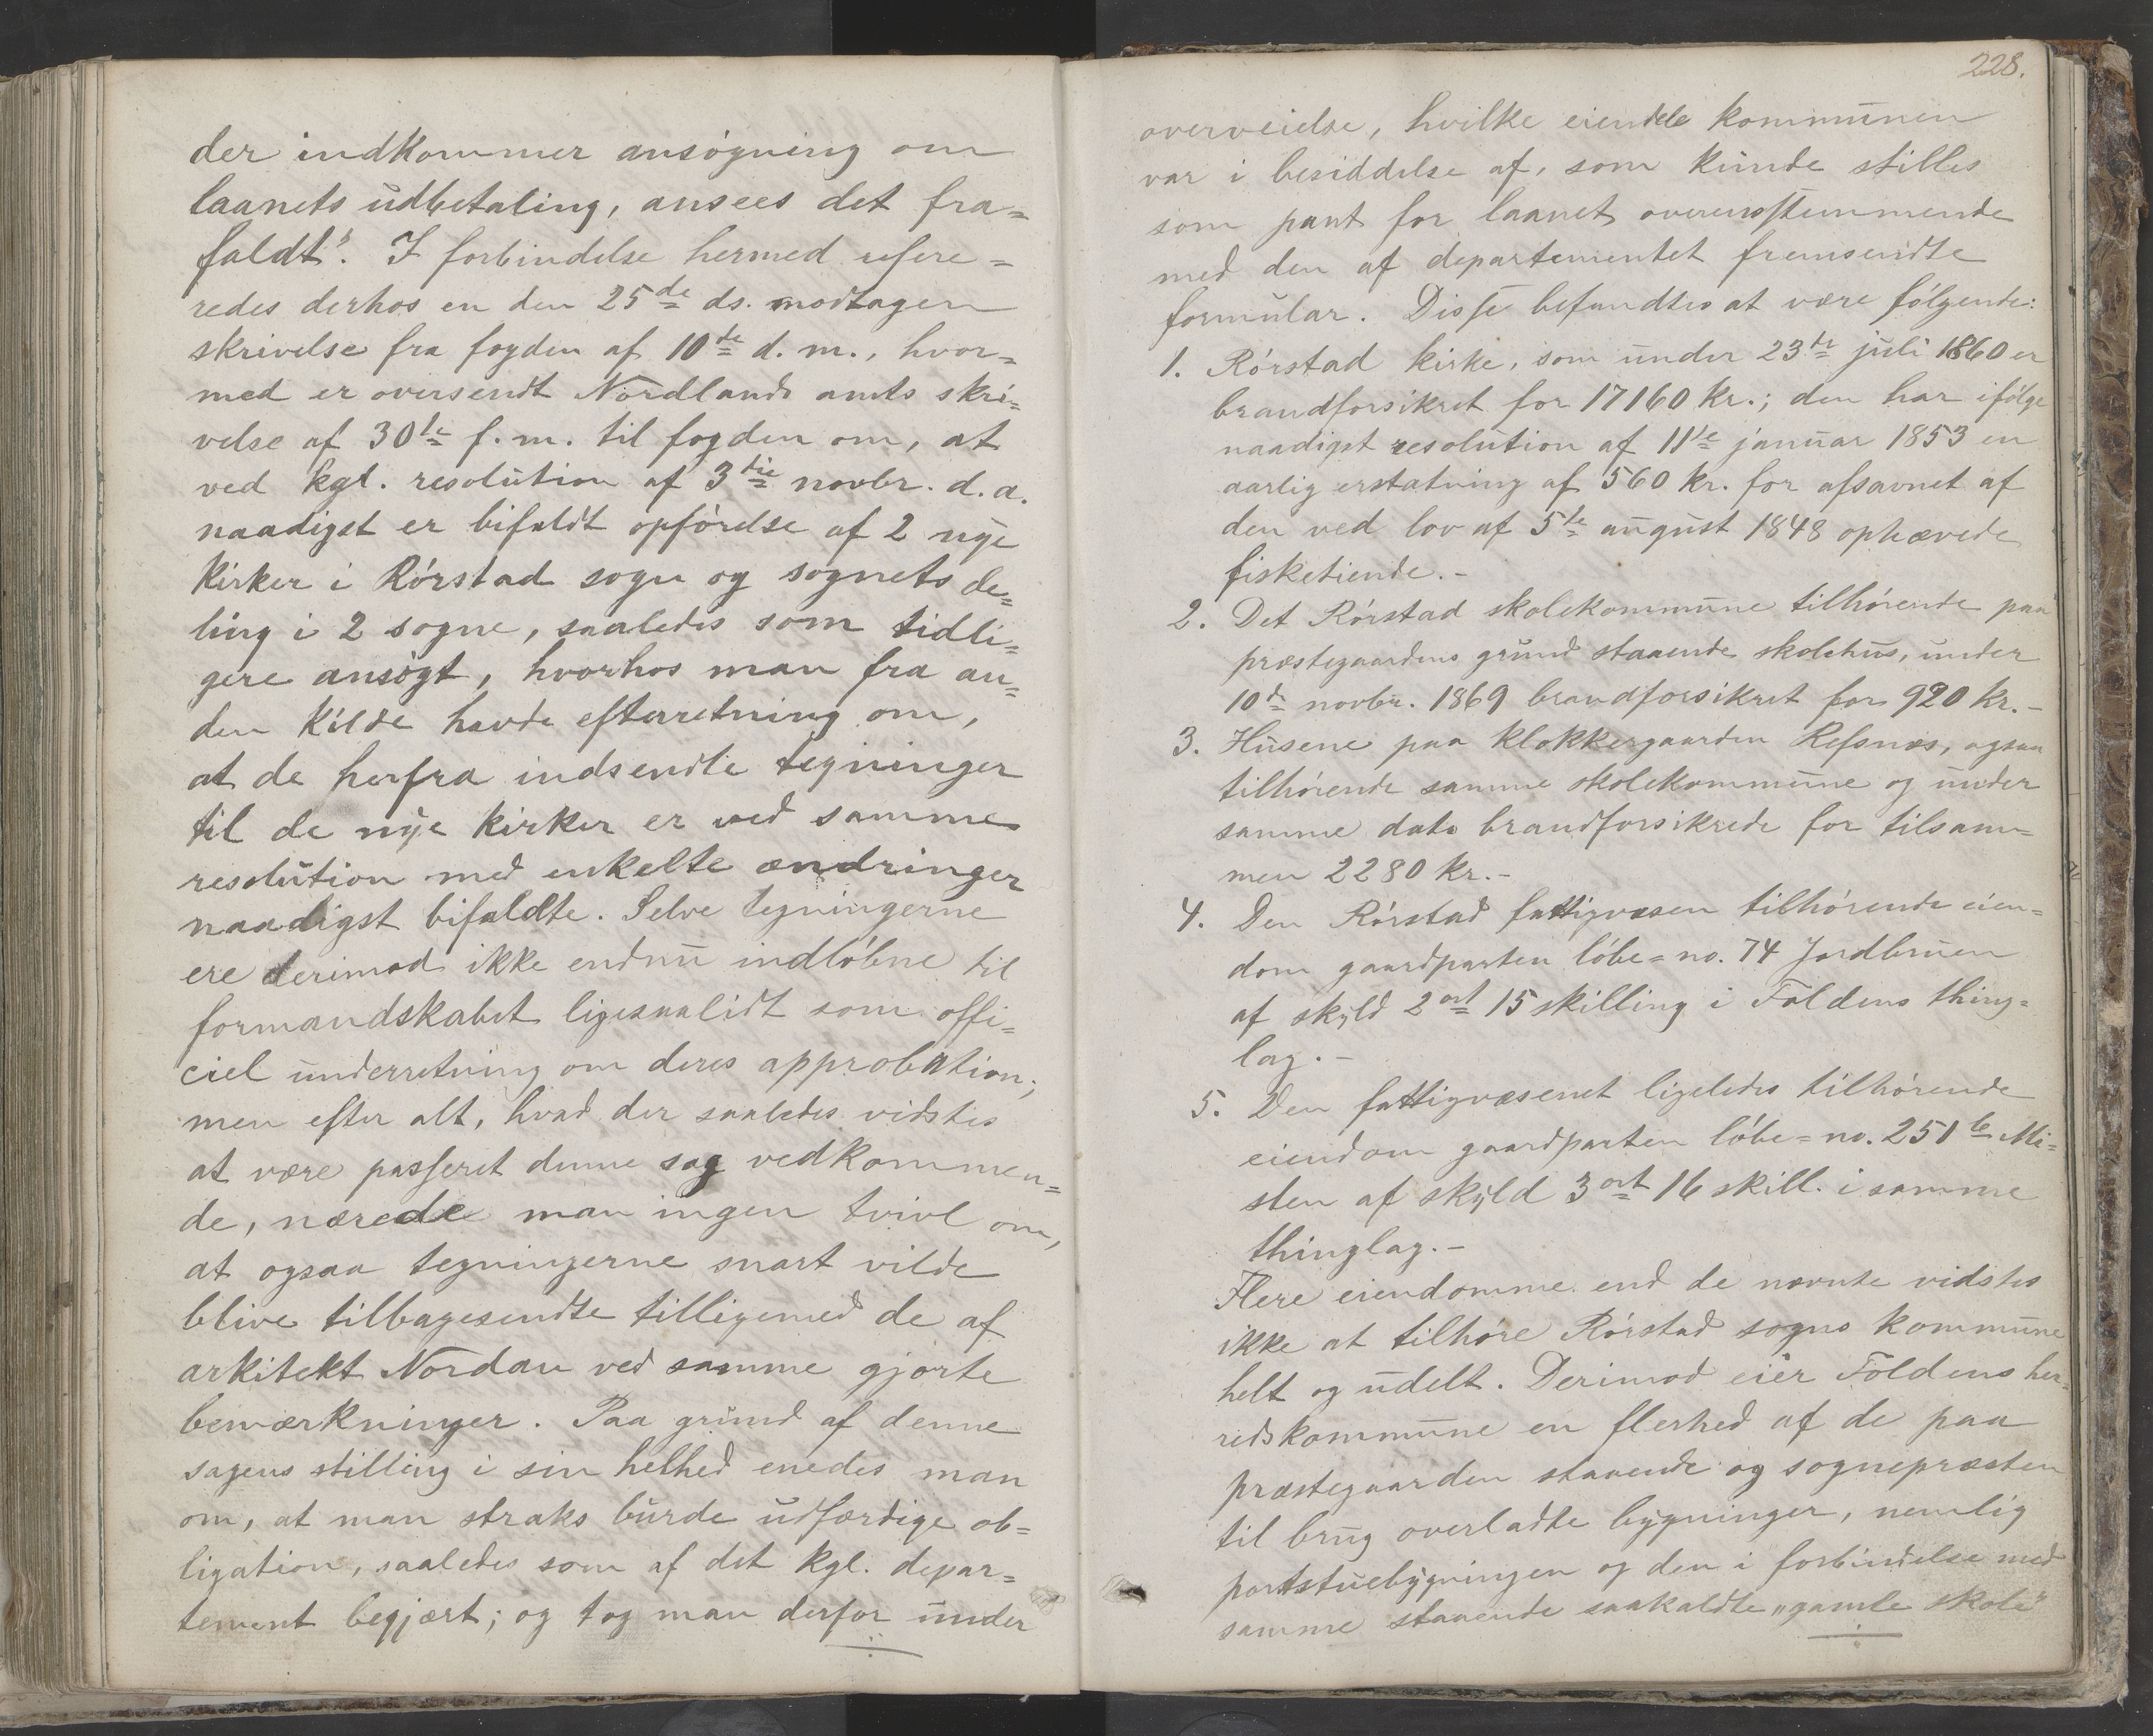 der indkommer ansøgning om
laanets udbetaling, ansees det fra=
faldt". I forbindelse hermed refere=
redes derhos en den 25de ds. modtagen
skrivelse fra fogden af 10de d. m., hvor=
med er oversendt Nordlands amts skri=
velse af 30te f. m. til fogden om, at
ved kgl. resolution af 3die novbr. d. a.
naadigst er bifaldt opførelse af 2 nye
kirker i Rørstad sogn og sognets de=
ling i 2 sogne, saaledes som tidli=
gere ansøgt, hvorhos man fra an=
den kilde havde efterretning om,
at de herfra indsendte tegninger
til de nye kirker er ved samme
resolution med enkelte ændringer
naadigst bifaldte. Selve tegningerne
ere derimod ikke endnu indløbne til
formandskabet ligesaalidt som offi=
ciel underretning om deres approbation;
men efter alt, hvad der saaledes vidstes
at være passeret denne sag vedkommen=
de, nærede man ingen tvivl om,
at ogsaa tegningerne snart vilde
blive tilbagesendte tilligemed de af
arkitekt Nordan ved samme gjorte
bemærkninger. Paa grund af denne
sagens stilling i sin helhed enedes man
om, at man straks burde udfærdige ob=
ligation, saaledes som af det kgl. depar=
tement begjært; og tog man derfor under
228.
overveielse, hvilke eiendele kommunen
var i besiddelse af, som kunde stilles
som pant for laanet overensstemmende
med den af departementet fremsendte
formular. Disse befandtes at være følgende:
1. Rørstad kirke, som under 23de juli 1860 er
brandforsikret for 17160 kr.; den har ifølge
naadigst resolution af 11te januar 1853 en
aarlig erstatning af 560 kr. for afsavnet af
den ved lov af 5te august 1848 ophævede
fisketiende.-
2. Det Rørstad skolekommune tilhørende paa
præstegaardens grund staaende skolehus, under
10de novbr. 1869 brandforsikret for 920 kr.-
3. Husene paa klokkergaarden Refsnæs, ogsaa
tilhørende samme skolekommune og under
samme dato brandforsikrede for tilsam=
men 2280 kr.-
4. Den Rørstad fattigvæsen tilhørende eien=
dom gaardparten løbe=no. 74 Jordbruen
af skyld 2 ort 15 skilling i Foldens thing=
lag.-
5. Den fattigvæsenet ligeledes tilhørende
eiendom gaardparten løbe=no. 251b Mi=
sten af skyld 3 ort 16 skill. i samme
thinglag.-
Flere eiendomme end de nævnte vidstes
ikke at tilhøre Rørstad sogns kommune
helt og udelt. Derimod eier Foldens her=
redskommune en flerhed af de paa
præstegaarden staaende og sognepræsten
til brug overladte bygninger, nemlig
portstuebygningen og den i forbindelse med
samme staaende saakaldte „gamle skole"